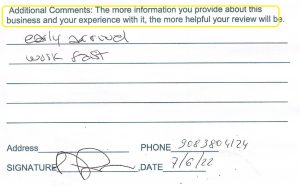 Additional Comments: The more information you provide about this
business and your experience with it, the more helpful your review will be.
early arrival
work fast
Address PHONE 9083804124
SIGNATURE ,DATE 7/6/22